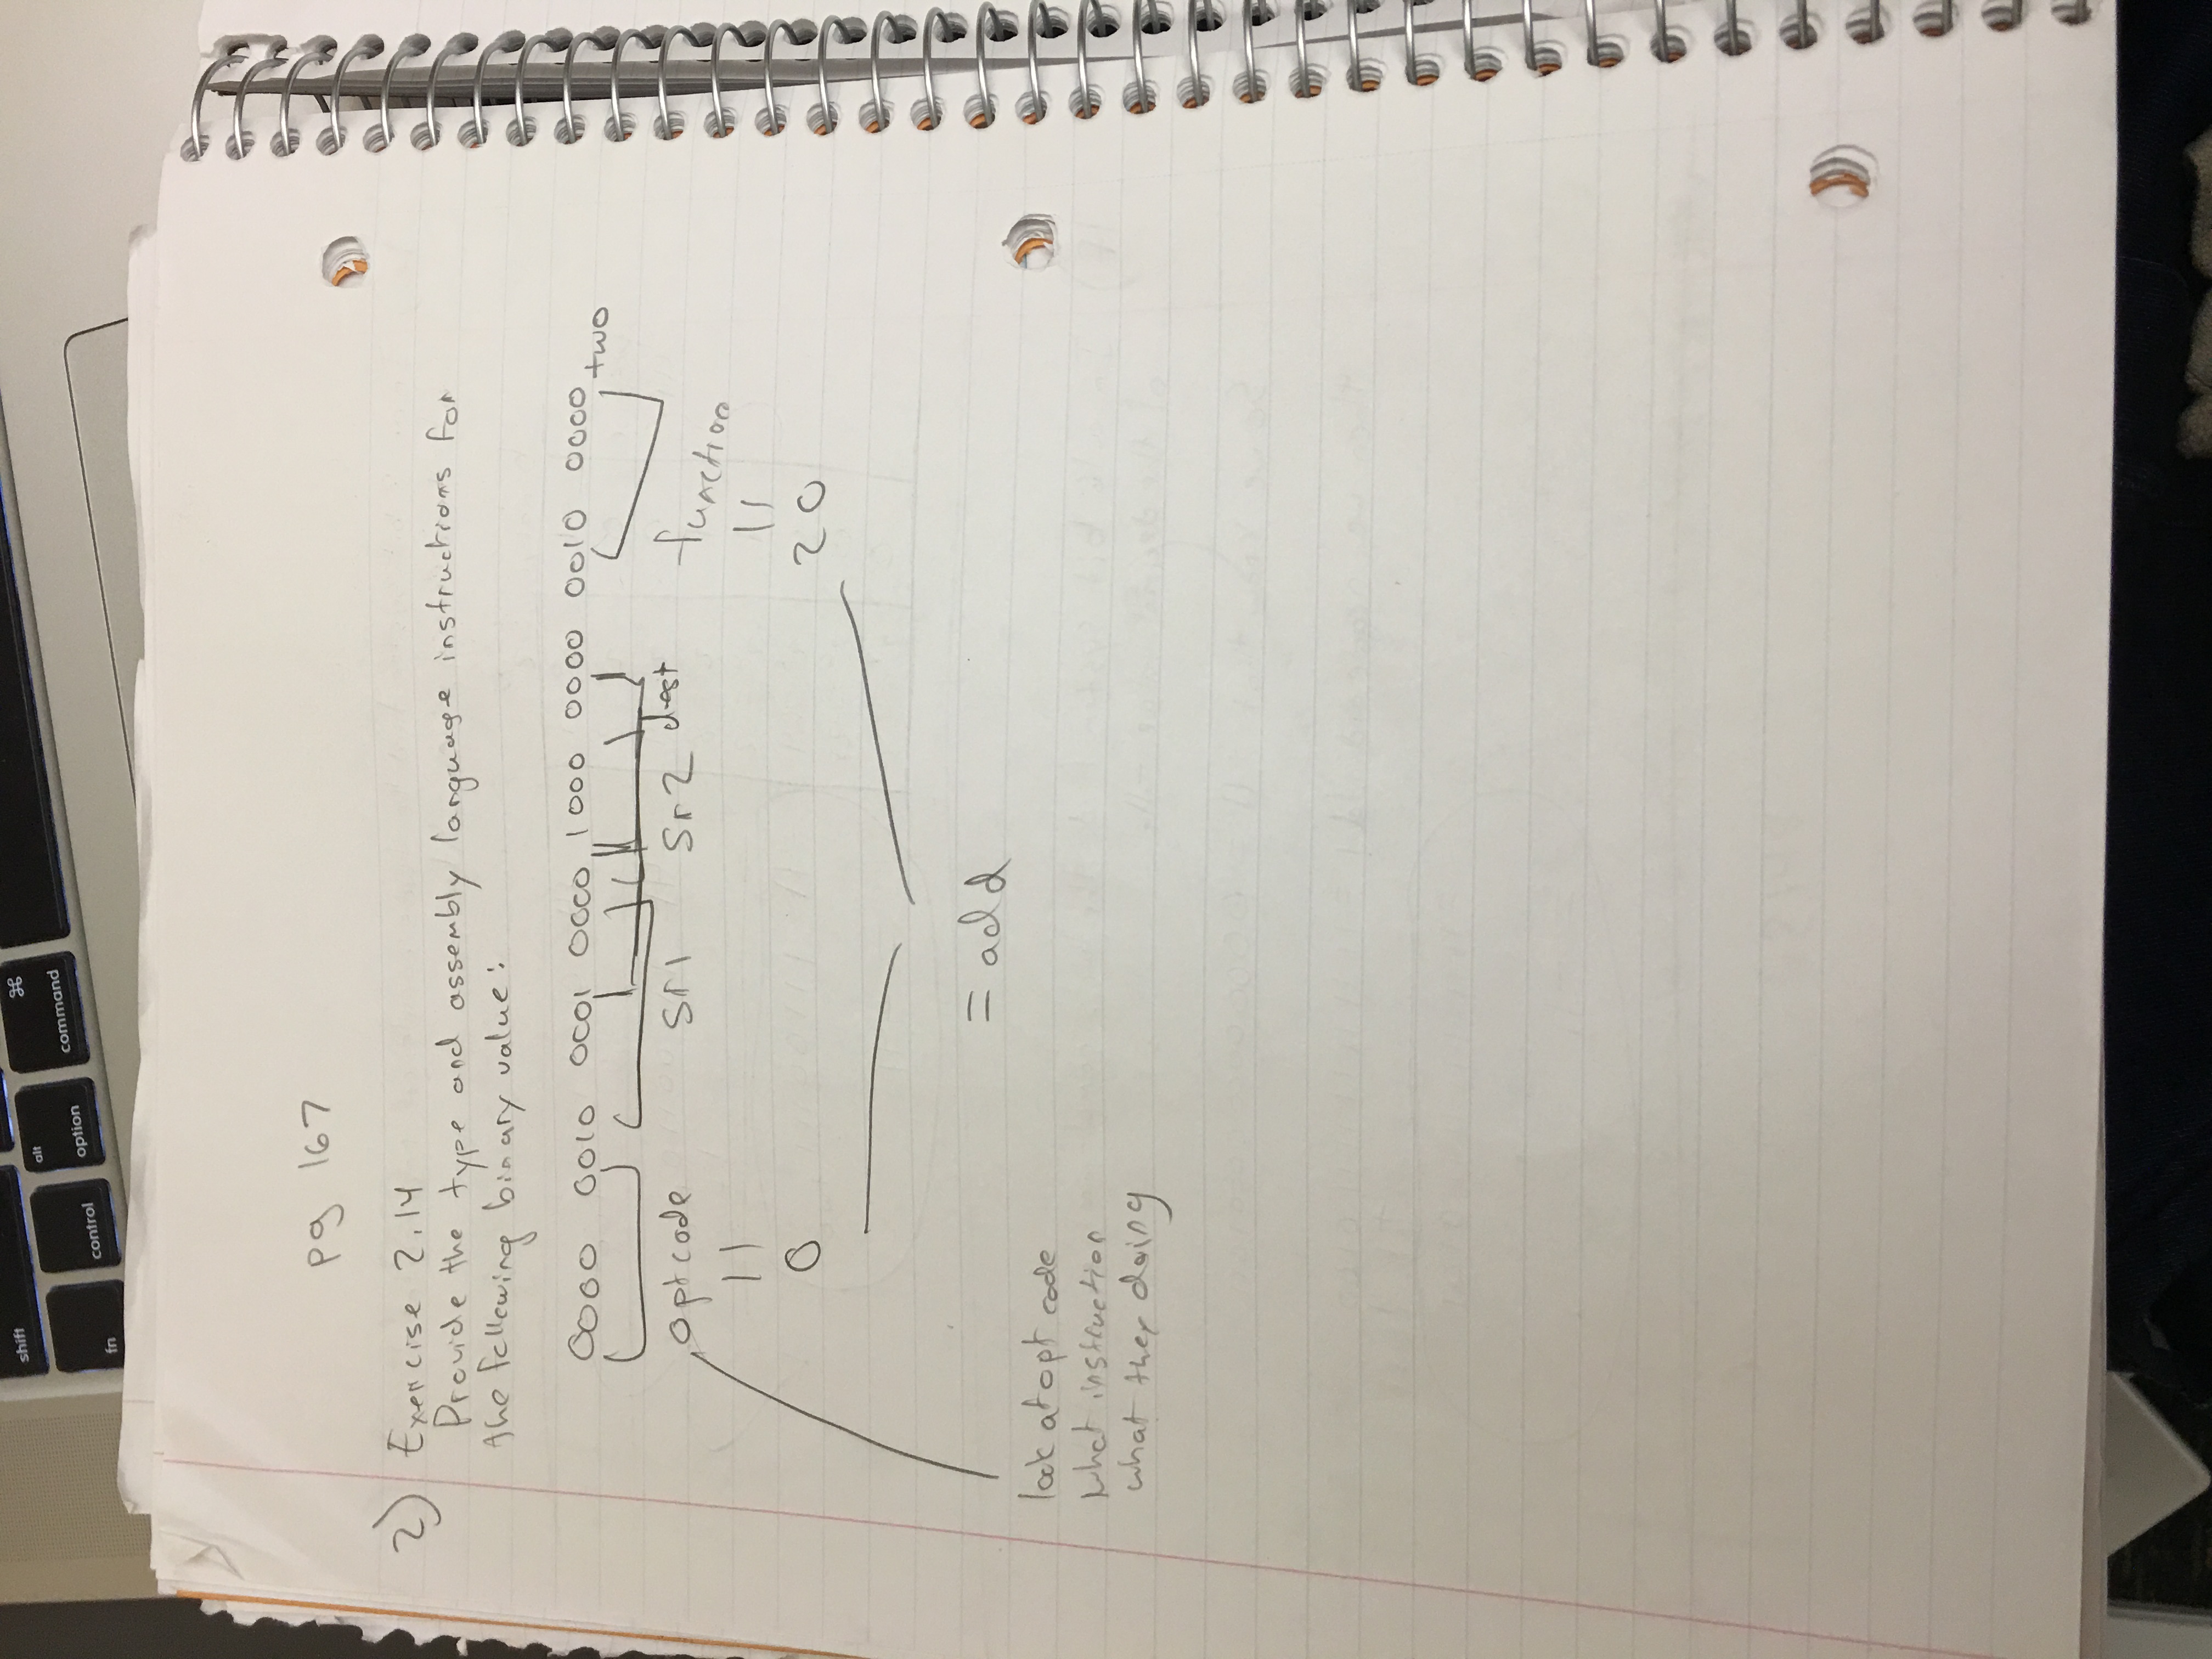 shift
fn
control
alt
option
⌘
command
pg 167
2) Exercise 2.14
Provide the type and assembly language instructions for
the following binary value:
0000 0010 0001 0000 1000 0000 0010 0000 two
optcode sr1 sr2 dest function
11 11
0 20
= add
look at opt code
what instruction
what they doing